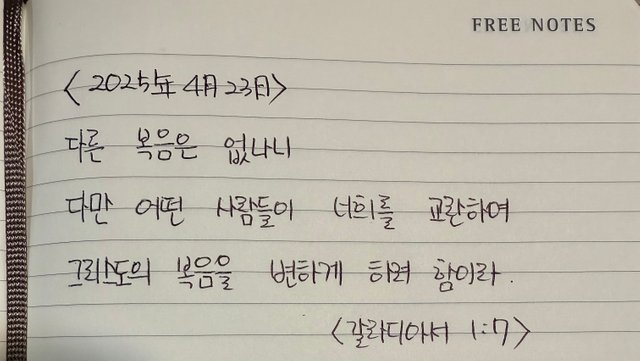 FREE NOTES
<2025年 4月 23日>
다른 복음은 없나니
다만 어떤 사람들이 너희를 교란하여
그리스도의 복음을 변하게 하려 함이라.
<갈라디아서 1:7>